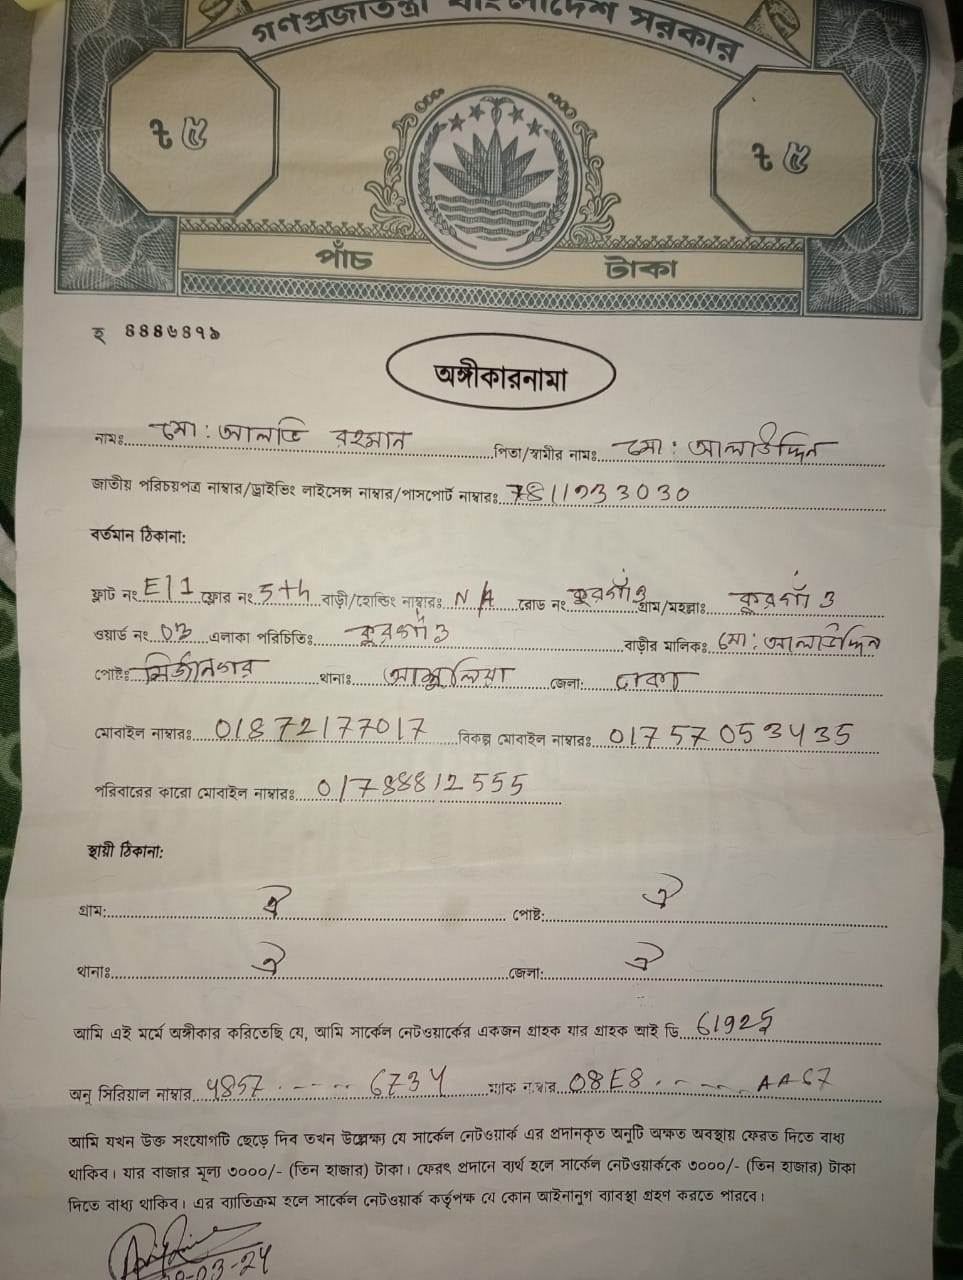 গণপ্রজাতন্ত্রী বাংলাদেশ সরকার
৳ ৫ ৳ ৫
পাঁচ টাকা
হ ৪৪৪৬৪৭৯
অঙ্গীকারনামা
নামঃ মো: আলভি রহমান পিতা/স্বামীর নামঃ মো: আলাউদ্দিন
জাতীয় পরিচয়পত্র নাম্বার/ড্রাইভিং লাইসেন্স নাম্বার/পাসপোর্ট নাম্বারঃ 7811933030
বর্তমান ঠিকানা:
ফ্লাট নংঃ E/1 ফ্লোর নংঃ 5th বাড়ী/হোল্ডিং নাম্বারঃ N/A রোড নংঃ কুরগাঁও গ্রাম/মহল্লাঃ কুরগাঁও
ওয়ার্ড নংঃ 03 এলাকা পরিচিতিঃ কুরগাঁও বাড়ীর মালিকঃ মো: আলাউদ্দিন
পোষ্টঃ মির্জানগর থানাঃ আশুলিয়া জেলা: ঢাকা
মোবাইল নাম্বারঃ 01872177017 বিকল্প মোবাইল নাম্বারঃ 01757053435
পরিবারের কারো মোবাইল নাম্বারঃ 01788812555
স্থায়ী ঠিকানা:
গ্রাম: ঐ পোষ্ট: ঐ
থানাঃ ঐ জেলা: ঐ
আমি এই মর্মে অঙ্গীকার করিতেছি যে, আমি সার্কেল নেটওয়ার্কের একজন গ্রাহক যার গ্রাহক আই ডি
অনু সিরিয়াল নাম্বার 4857 ----- 6734 ম্যাক নাম্বার 08E8 ----- AA67
আমি যখন উক্ত সংযোগটি ছেড়ে দিব তখন উল্লেক্ষ্য যে সার্কেল নেটওয়ার্ক এর প্রদানকৃত অনুটি অক্ষত অবস্থায় ফেরত দিতে বাধ্য
থাকিব। যার বাজার মূল্য ৩০০০/- (তিন হাজার) টাকা। ফেরৎ প্রদানে ব্যর্থ হলে সার্কেল নেটওয়ার্ককে ৩০০০/- (তিন হাজার) টাকা
দিতে বাধ্য থাকিব। এর ব্যতিক্রম হলে সার্কেল নেটওয়ার্ক কর্তৃপক্ষ যে কোন আইনানুগ ব্যাবস্থা গ্রহণ করতে পারবে।